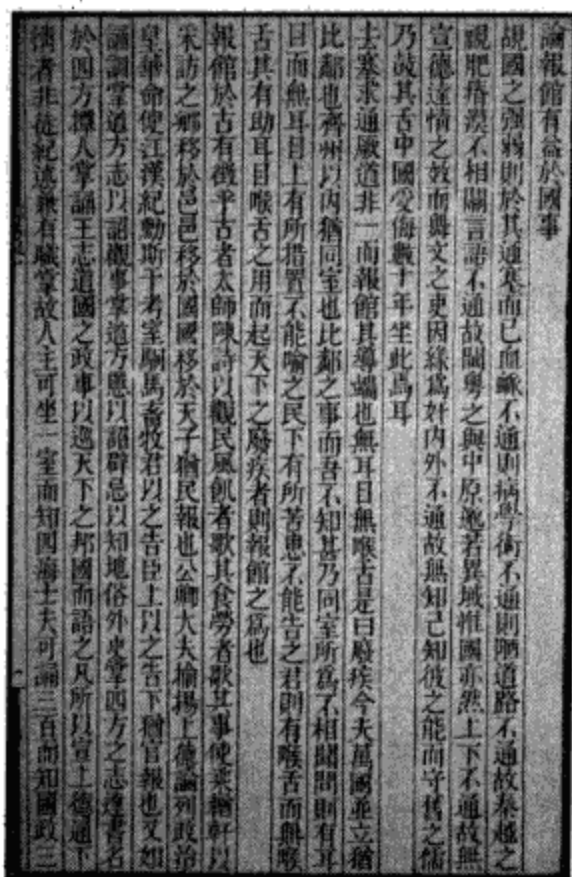 論報館有益於國事
覘國之强弱則於其通塞而已血脈不通則病學術不通則陋道路不通故秦越之
視肥瘠漠不相關言語不通故閩粵之與中原邈若異域惟國亦然上下不通故無
宣德達情之效而舞文之吏因緣爲奸內外不通故無知己知彼之能而守舊之儒
乃鼓其舌中國受侮數十年坐此焉耳
去塞求通厥道非一而報館其導端也無耳目無喉舌是曰廢疾今夫萬國並立猶
比鄰也齊州以內猶同室也比鄰之事而吾不知甚乃同室所爲不相聞問則有耳
目而無耳目上有所措置不能喻之民下有所苦患不能告之君則有喉舌而無喉
舌其有助耳目喉舌之用而起天下之廢疾者則報館之爲也
報館於古有徵乎古者太師陳詩以觀民風飢者歌其食勞者歌其事使乘輶軒以
采訪之鄉移於邑邑移於國國移於天子猶民報也公卿大夫揄揚上德論列政治
皇華命使江漢紀勳斯干考室駉馬畜牧君以之告臣上以之告下猶官報也又如
誦訓掌道方志以詔觀事掌道方慝以詔辟忌以知地俗外史掌四方之志達書名
於四方撢人掌誦王志道國之政事以巡天下之邦國而語之凡所以宣上德通下
情者非徒紀述兼有職掌故人主可坐一室而知四海士夫可誦三百而知國政三